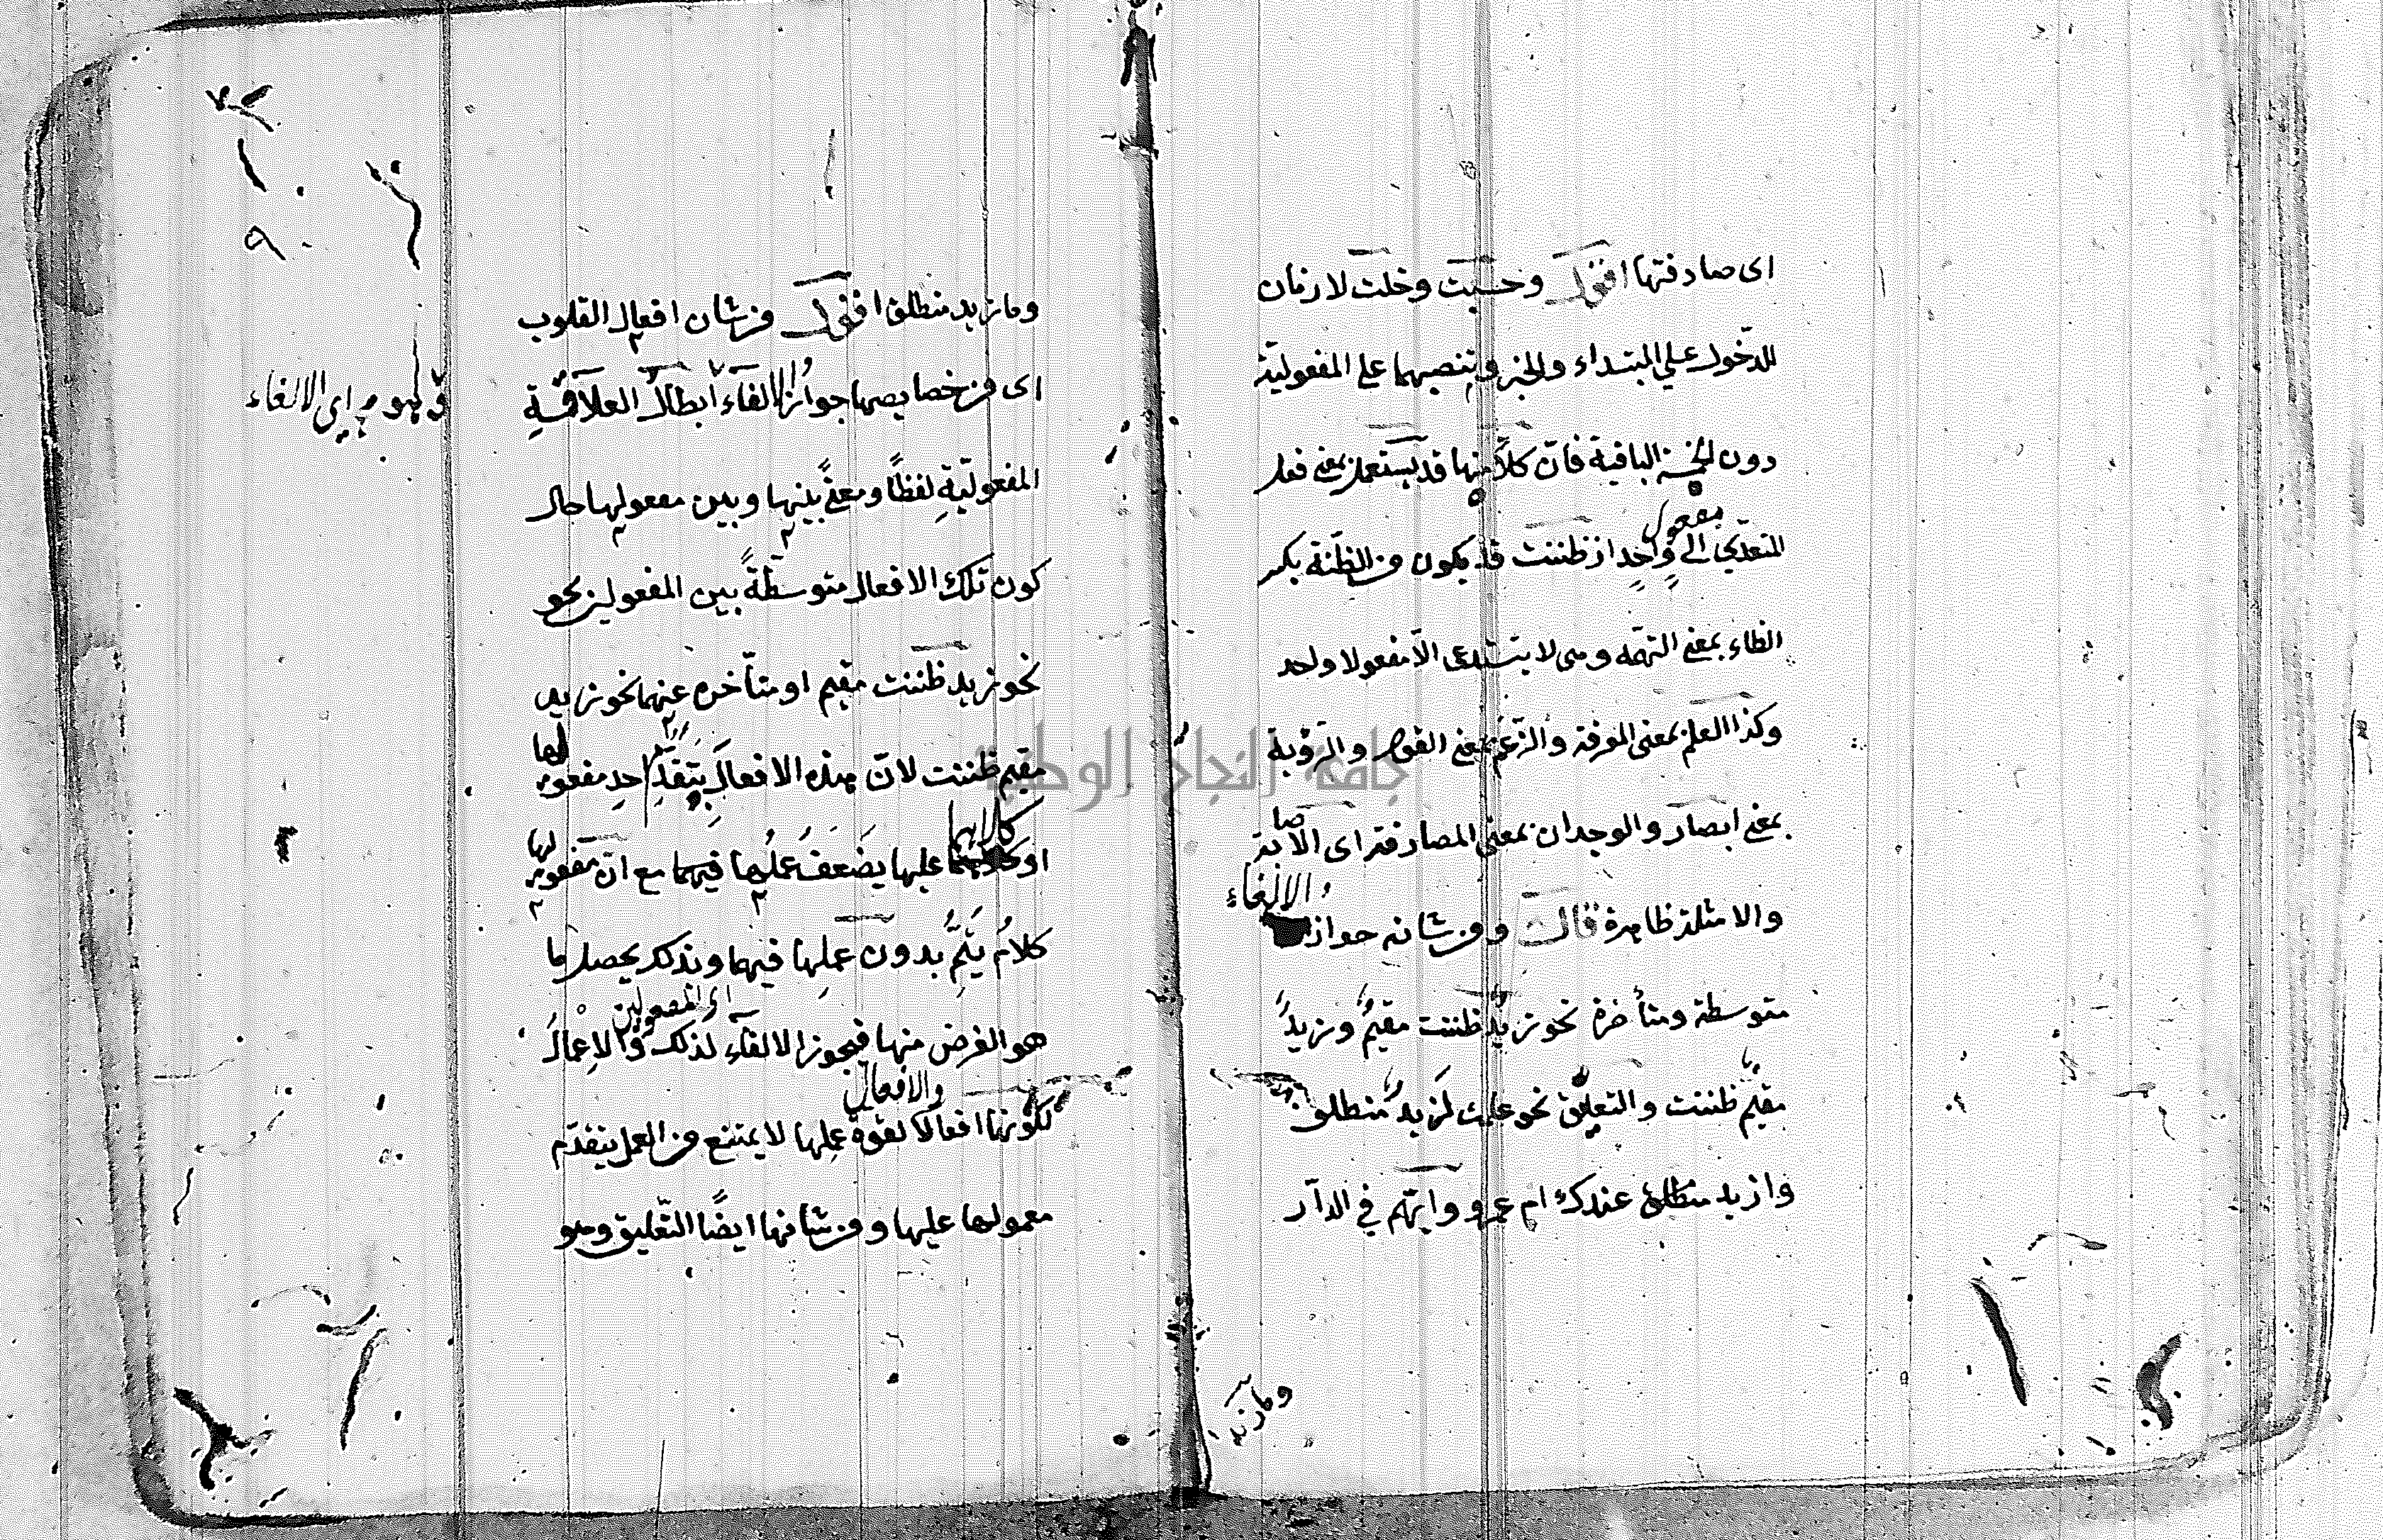 اى صادفتها اقول وحسبت وخلت لازمان
للدّخول على المبتداء والخبر وتنصبهما على المفعولية
دون الخمسة الباقية فانّ كلاً منها قد يستعمل بمعنى فعل
المتعدّي الى مفعول واحد اذ ظننت قد يكون من الظّنة بكسر
الظاء بمعنى التهمه وهى لا يستدعى الّا مفعولا واحد
وكذا العلم بمعنى المعرفة والزّعم بمعنى القول والرّؤية
بمعنى ابصار والوجدان بمعنى المصادفة اى الاصابة
والامثلة ظاهرة قال ومن شانه جواز الالغاء
متوسطة ومتأخرة نحو زيدٌ ظننت مقيمٌ وزيدٌ
مقيمٌ ظننت والتعليق نحو علمت لزيدٌ منطلق
وازيد منطلق عندك ام عمرو وايّهم في الدار
وما زيد
وما زيد منطلق اقول من شان افعال القلوب
اى من خصايصها جواز الالغاء ابطال العلاقة
المفعوليّةِ لفظًا ومعنًى بينها وبين مفعوليها حال
كون تلك الافعال متوسطةً بين المفعولين نحو
نحو زيد ظننت مقيم او متأخره عنهما نحو زيد
مقيم ظننت لانّ هذه الافعال بتقدّم احد مفعوليها
او كلاهما عليها يضعف عملها فيهما مع انّ مفعوليها
كلامٌ يتمُّ بدون عملها فيهما وبذلك يحصل ما
هو الغرض منها فيجوز الالغاء لذلك والاعمال
اى المفعولين
لكونها افعالا لقوة عملها لا يمتنع من العمل بتقدّم
والافعال
معمولها عليها ومن شأنها ايضًا التعليق وهو
قوله وهو اى الالغاء